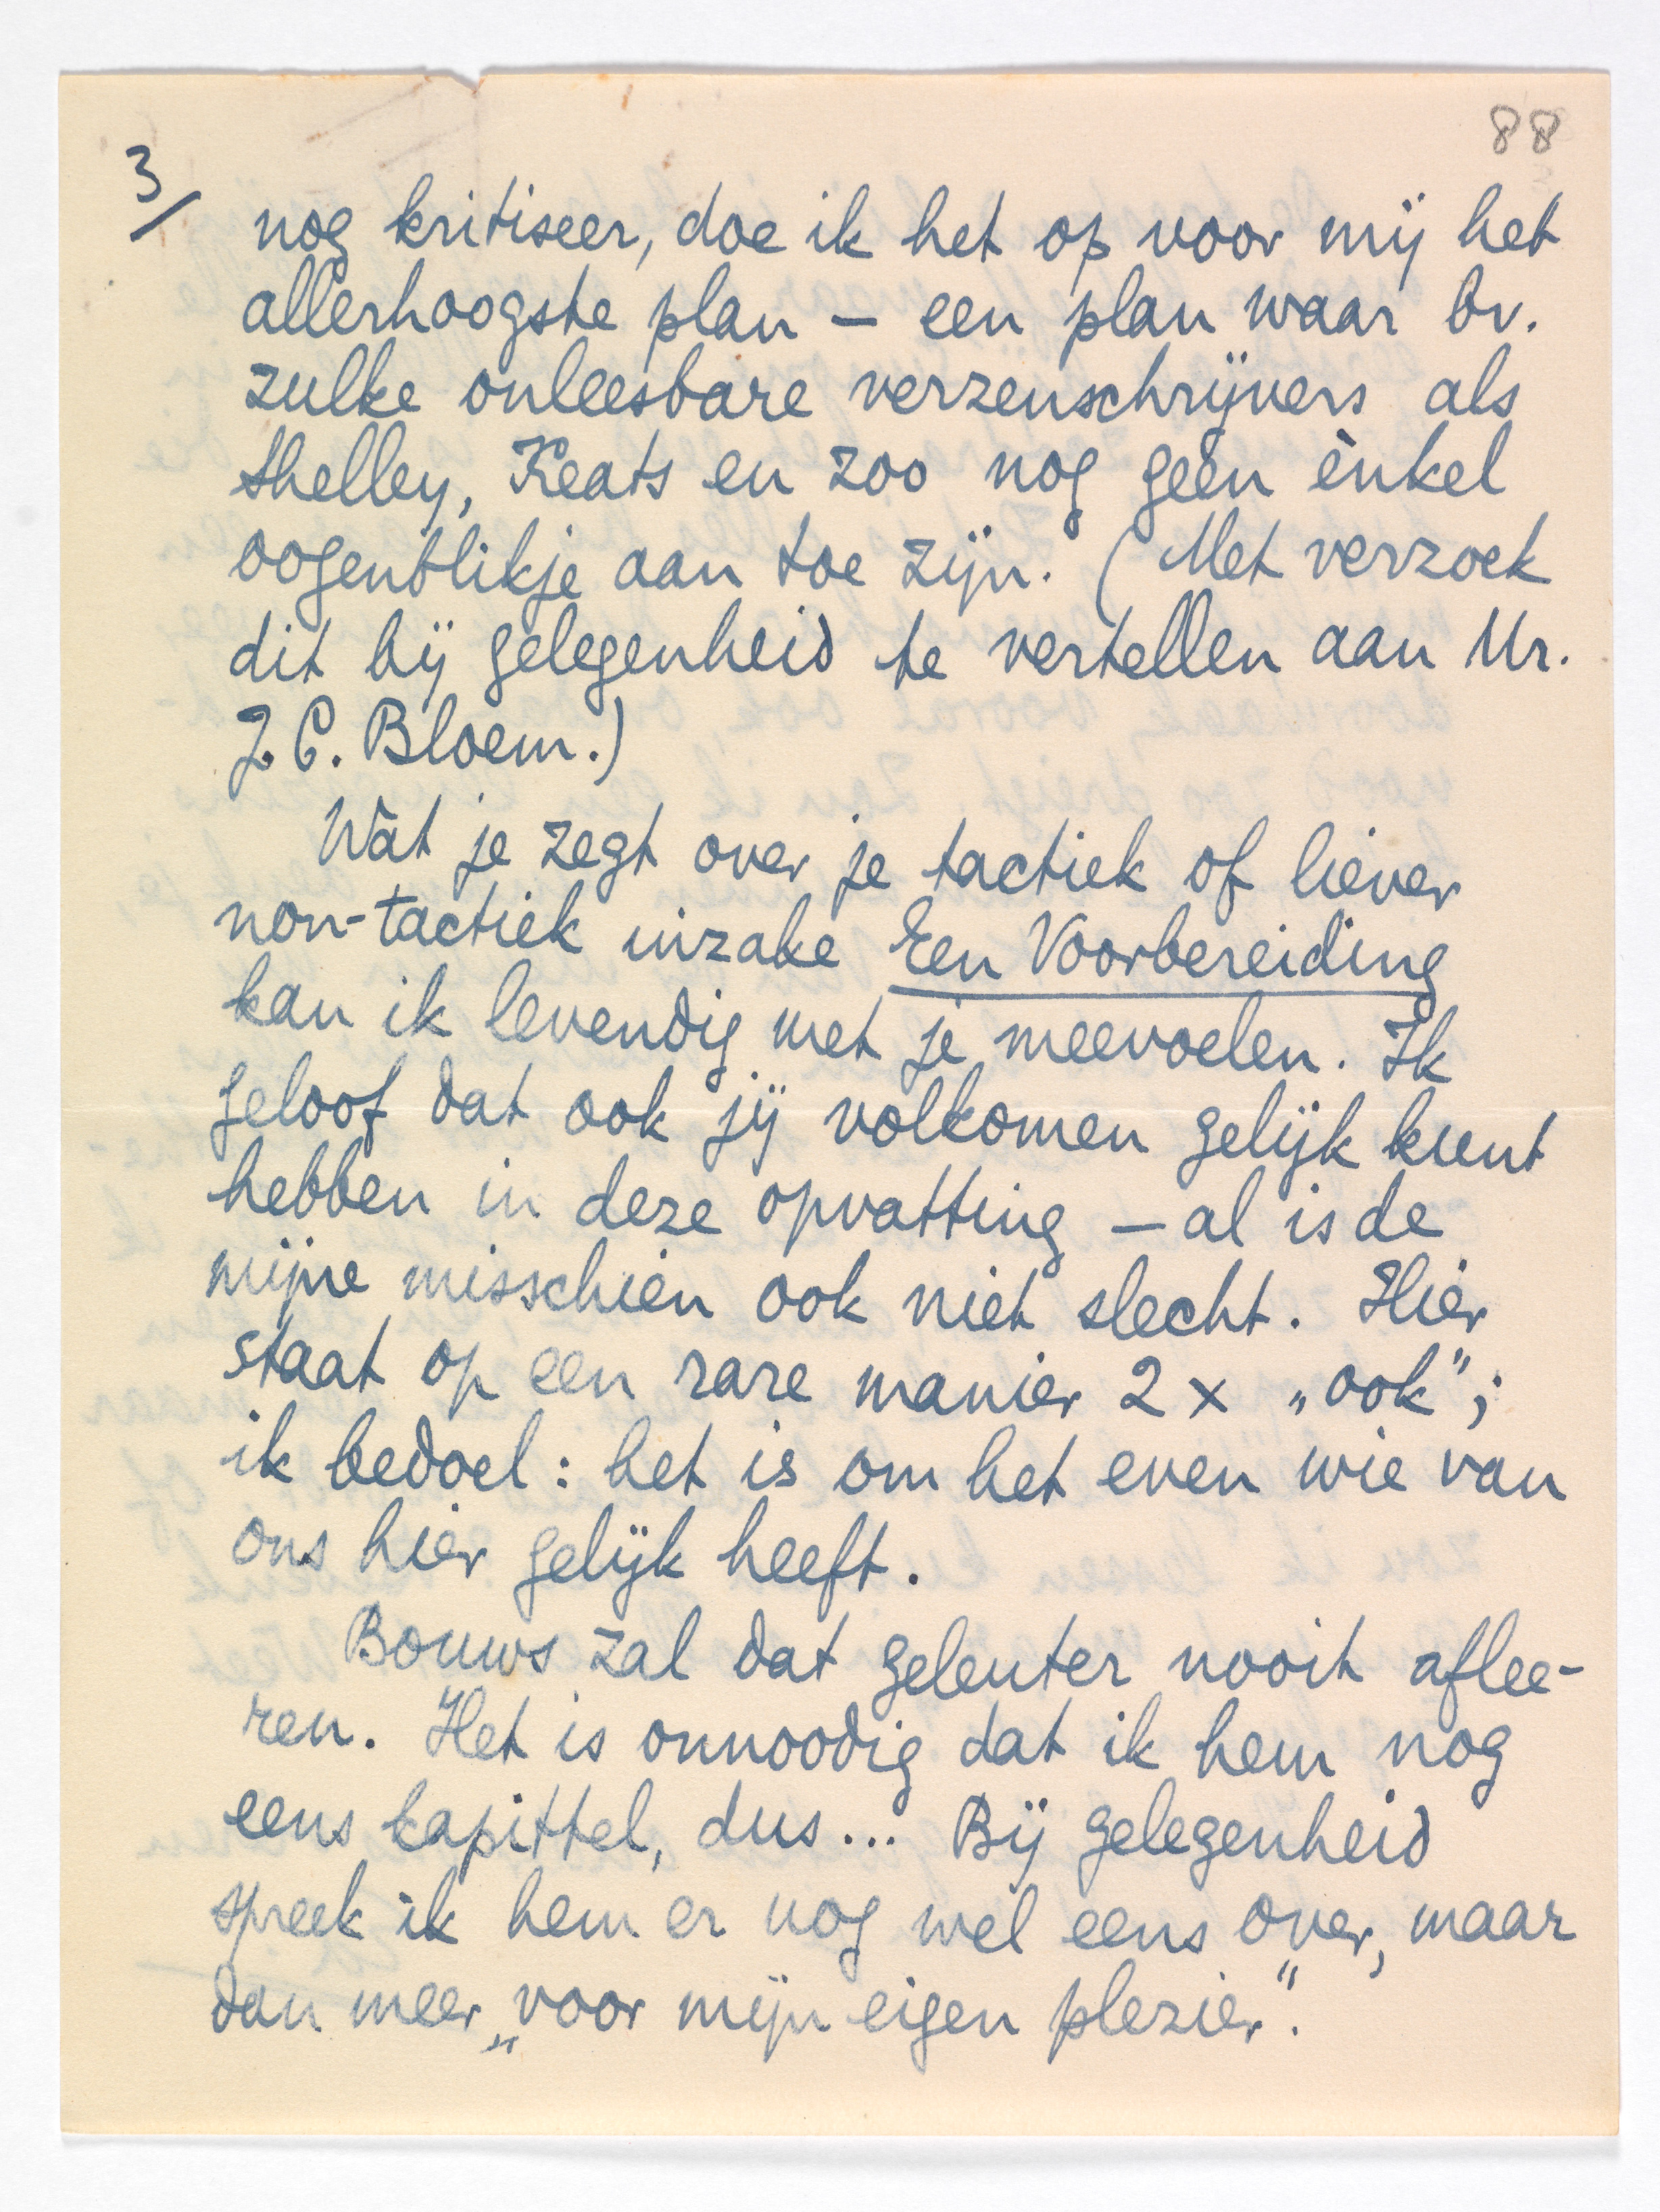 88
3/
nog kritiseer, doe ik het op voor mij het
allerhoogste plan — een plan waar bv.
zulke onleesbare verzenschrijvers als
Shelley, Keats en zoo nog geen ènkel
oogenblikje aan toe zijn. (Met verzoek
dit bij gelegenheid te vertellen aan Mr.
J. C. Bloem.)
Wat je zegt over je tactiek of liever
non-tactiek inzake Een Voorbereiding
kan ik levendig met je meevoelen. Ik
geloof dat ook jij volkomen gelijk kunt
hebben in deze opvatting — al is de
mijne misschien ook niet slecht. Hier
staat op een rare manier 2 x „ook”;
ik bedoel: het is om het even wie van
ons hier gelijk heeft.
Bouws zal dat geleuter nooit aflee-
ren. Het is onnoodig dat ik hem nog
eens kapittel, dus... Bij gelegenheid
spreek ik hem er nog wel eens over, maar
dan meer „voor mijn eigen plezier”.